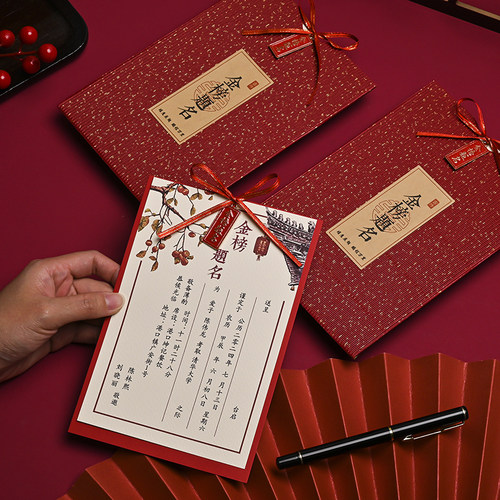 金榜題名
金榜題名
金榜
題名
送呈 台启
谨定于 公历二零二四年 七月十三日
农历 甲辰 年 六月初八日 星期六
为 爱子 陈伟龙 考取清华大学 之际
敬备薄酌
恭候光临
时间:十一时二十八分
席设:港口坤记餐饮
地址:港口镇广安街1号
陈林熙
刘晓丽 敬邀